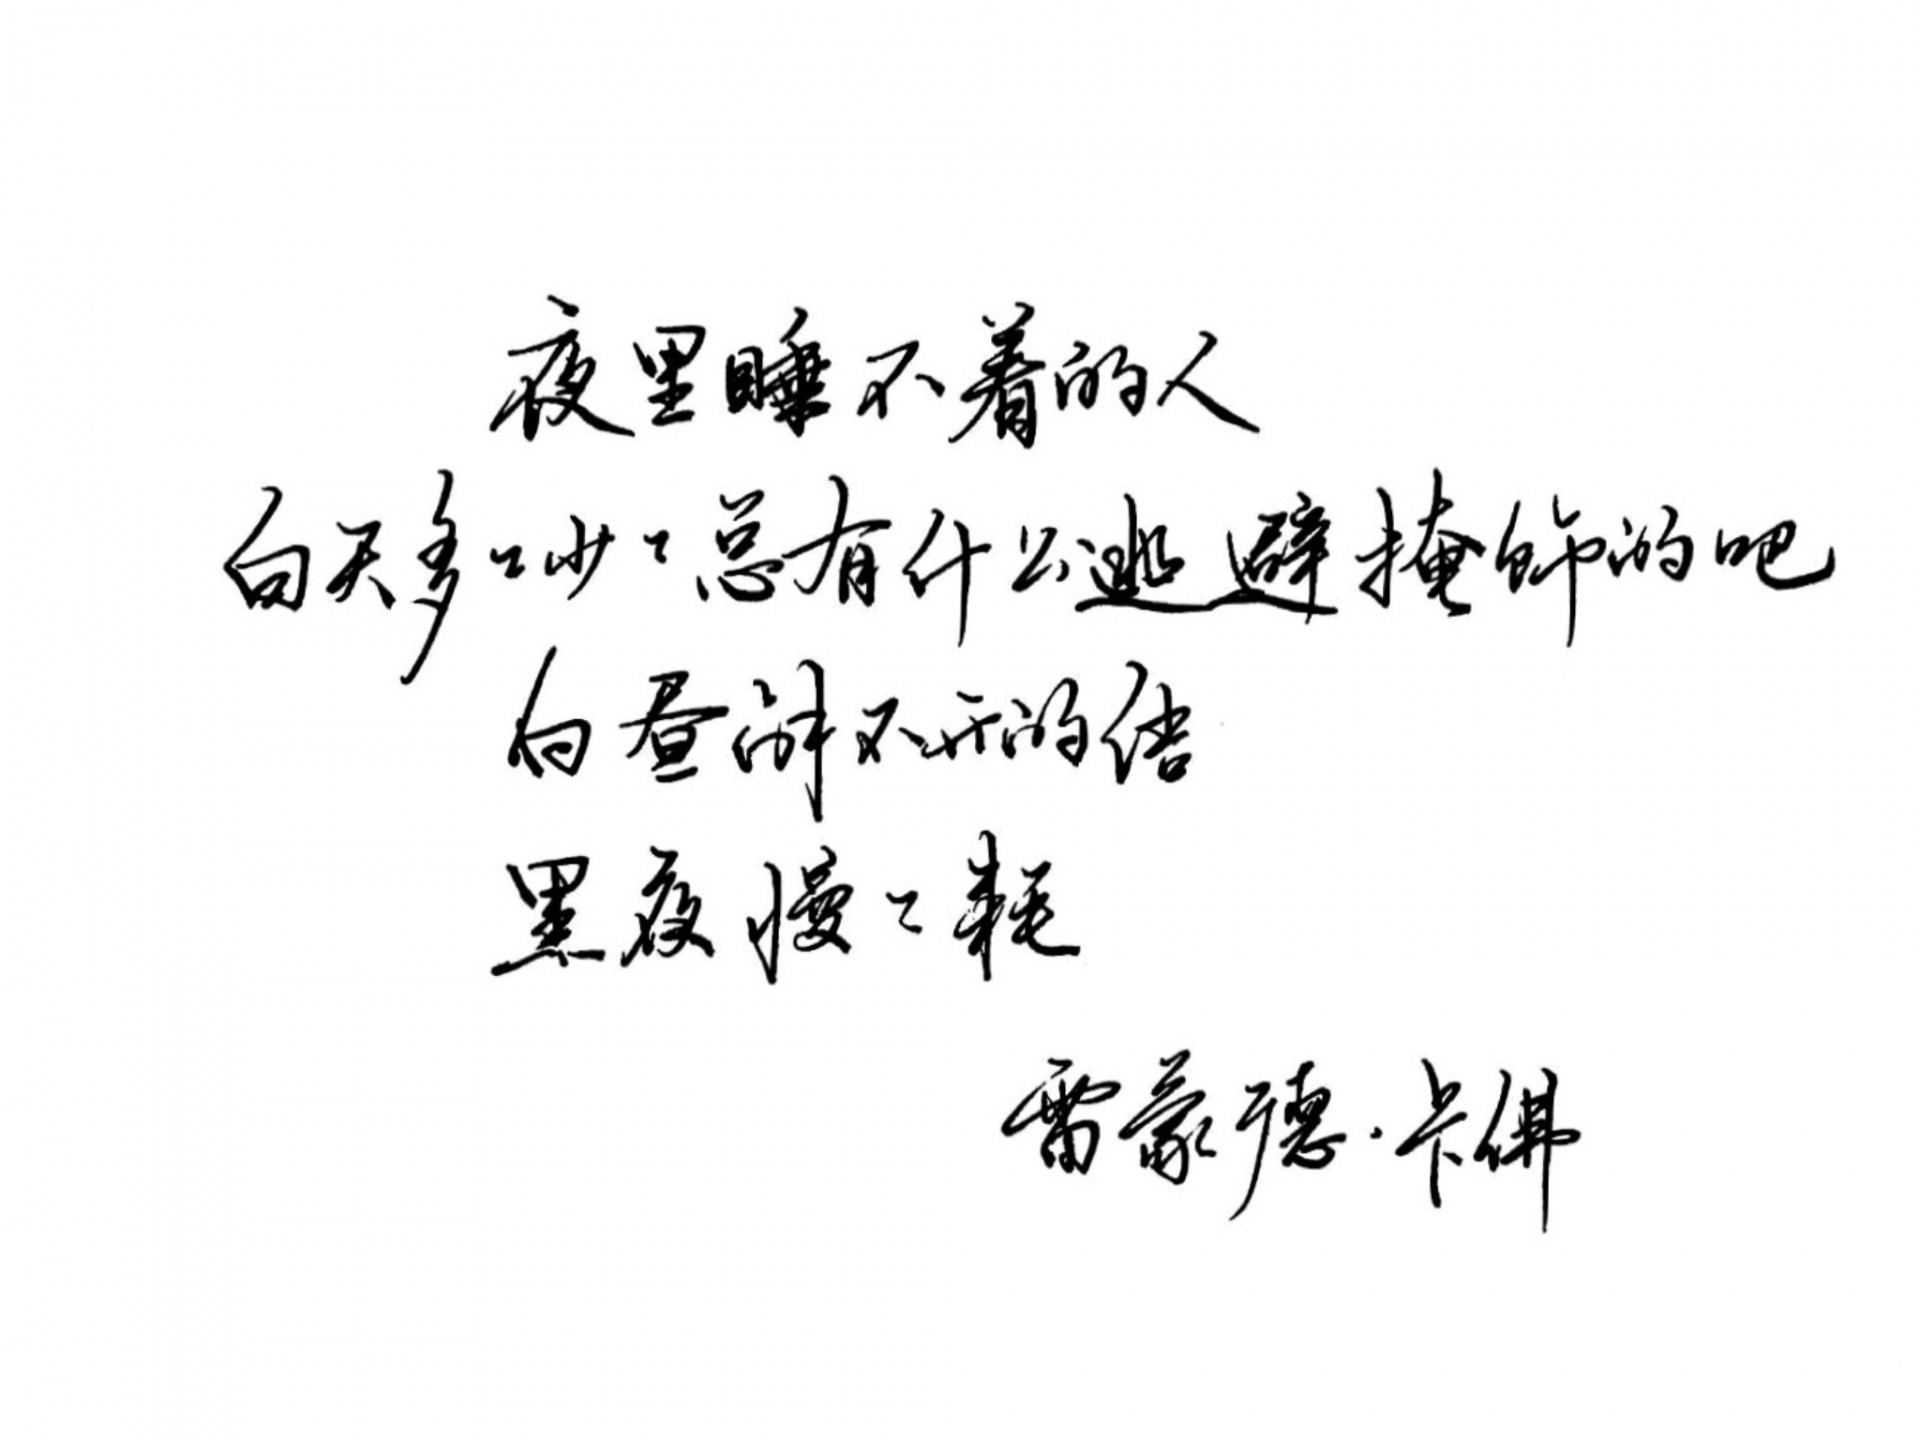 夜里睡不着的人
白天多多少少总有什么逃避掩饰的吧
白昼解不开的结
黑夜慢慢耗
雷蒙德·卡佛